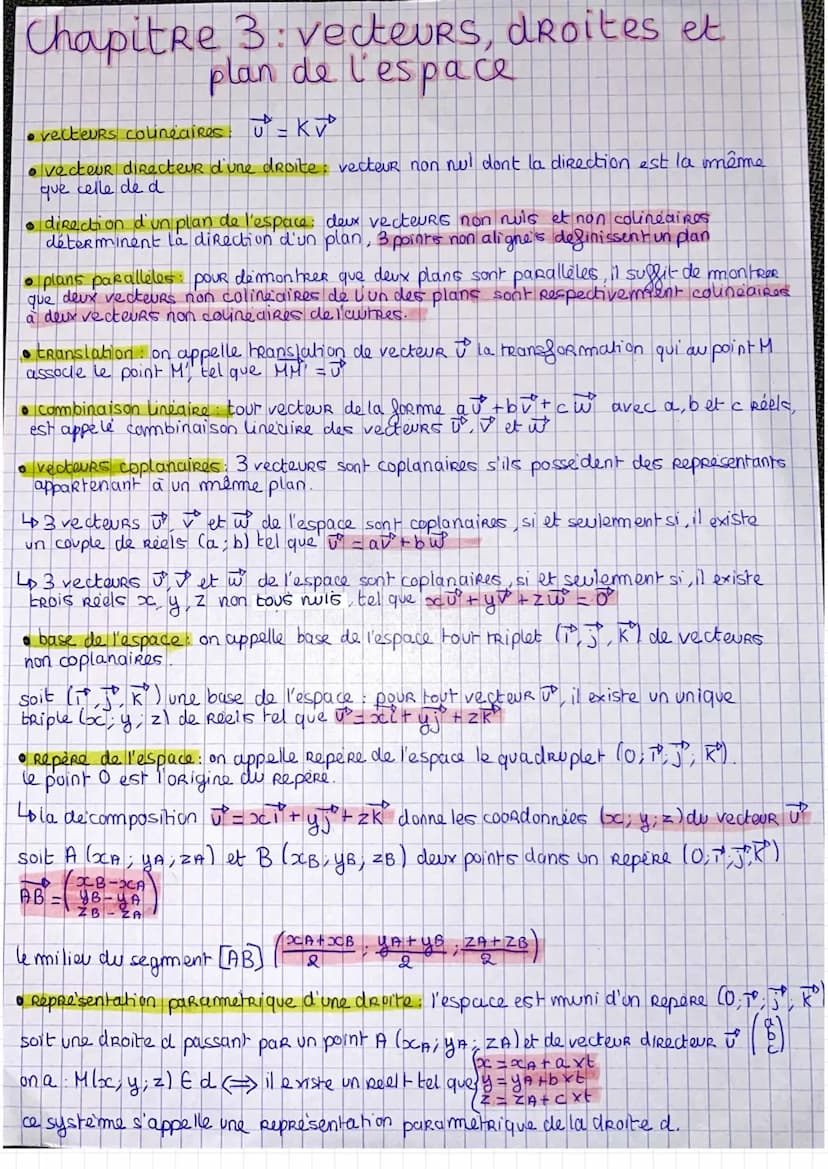 Chapitre 3 : vecteurs, droites et
plan de l'espace
• vecteurs colinéaires : u⃗ = K v⃗
• vecteur directeur d'une droite : vecteur non nul dont la direction est la même
que celle de d
• direction d'un plan de l'espace : deux vecteurs non nuls et non colinéaires
déterminent la direction d'un plan, 3 points non alignés définissent un plan
• plans parallèles : pour démontrer que deux plans sont parallèles, il suffit de montrer
que deux vecteurs non colinéaires de l'un des plans sont respectivement colinéaires
à deux vecteurs non colinéaires de l'autres.
• translation : on appelle translation de vecteur u⃗ la transformation qui au point M
associe le point M', tel que MM'⃗ = u⃗
• combinaison linéaire : tout vecteur de la forme a u⃗ + b v⃗ + c w⃗ avec a, b et c réels,
est appelé combinaison linéaire des vecteurs u⃗, v⃗ et w⃗
• vecteurs coplanaires : 3 vecteurs sont coplanaires s'ils possèdent des représentants
appartenant à un même plan.
↳ 3 vecteurs u⃗, v⃗ et w⃗ de l'espace sont coplanaires, si et seulement si, il existe
un couple de réels (a ; b) tel que u⃗ = a v⃗ + b w⃗
↳ 3 vecteurs u⃗, v⃗ et w⃗ de l'espace sont coplanaires, si et seulement si, il existe
trois réels x, y, z non tous nuls, tel que x u⃗ + y v⃗ + z w⃗ = 0⃗
• base de l'espace : on appelle base de l'espace tout triplet (i⃗, j⃗, k⃗) de vecteurs
non coplanaires.
soit (i⃗, j⃗, k⃗) une base de l'espace : pour tout vecteur u⃗, il existe un unique
triple (x ; y ; z) de réels tel que u⃗ = x i⃗ + y j⃗ + z k⃗
• repère de l'espace : on appelle repère de l'espace le quadruplet (0 ; i⃗ ; j⃗ ; k⃗).
le point O est l'origine du repère.
↳ la décomposition u⃗ = x i⃗ + y j⃗ + z k⃗ donne les coordonnées (x ; y ; z) du vecteur u⃗
soit A (xA ; yA ; zA) et B (xB ; yB, zB) deux points dans un repère (0 ; i⃗ ; j⃗ ; k⃗)
AB⃗ = (xB - xA
yB - yA
zB - zA)
le milieu du segment [AB] ((xA + xB)/2 ; (yA + yB)/2 ; (zA + zB)/2)
• représentation paramétrique d'une droite : l'espace est muni d'un repère (0 ; i⃗ ; j⃗ ; k⃗)
soit une droite d passant par un point A (xA ; yA ; zA) et de vecteur directeur u⃗ (a b c)
on a : M(x ; y ; z) ∈ d ⟺ il existe un réel t tel que { x = xA + a x t
y = yA + b x t
z = zA + c x t
ce système s'appelle une représentation paramétrique de la droite d.